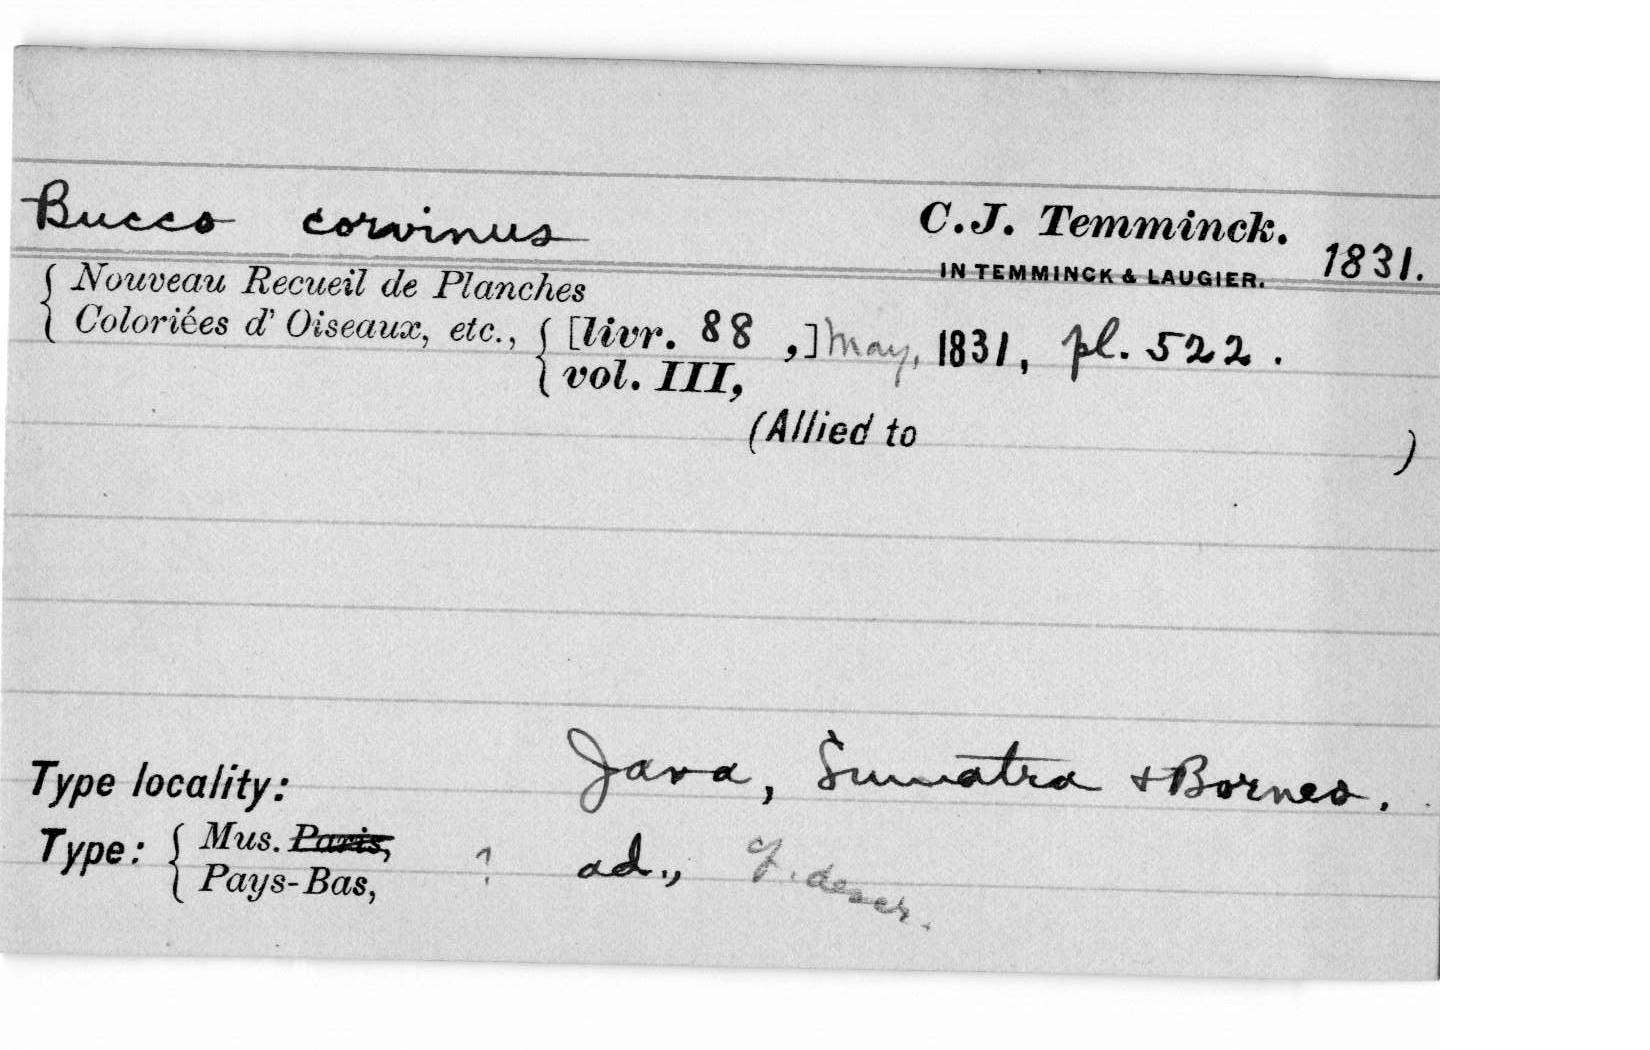 Bucco corvinus C.J. Temminck. 1831.
IN TEMMINCK & LAUGIER.
{ Nouveau Recueil de Planches
Coloriées d' Oiseaux, etc., { [livr. 88 ,] May, 1831, pl. 522.
vol. III,
(Allied to )
Type locality: Java, Sumatra & Borneo.
Type: { Mus. Paris, ? ad., descr.
Pays-Bas,